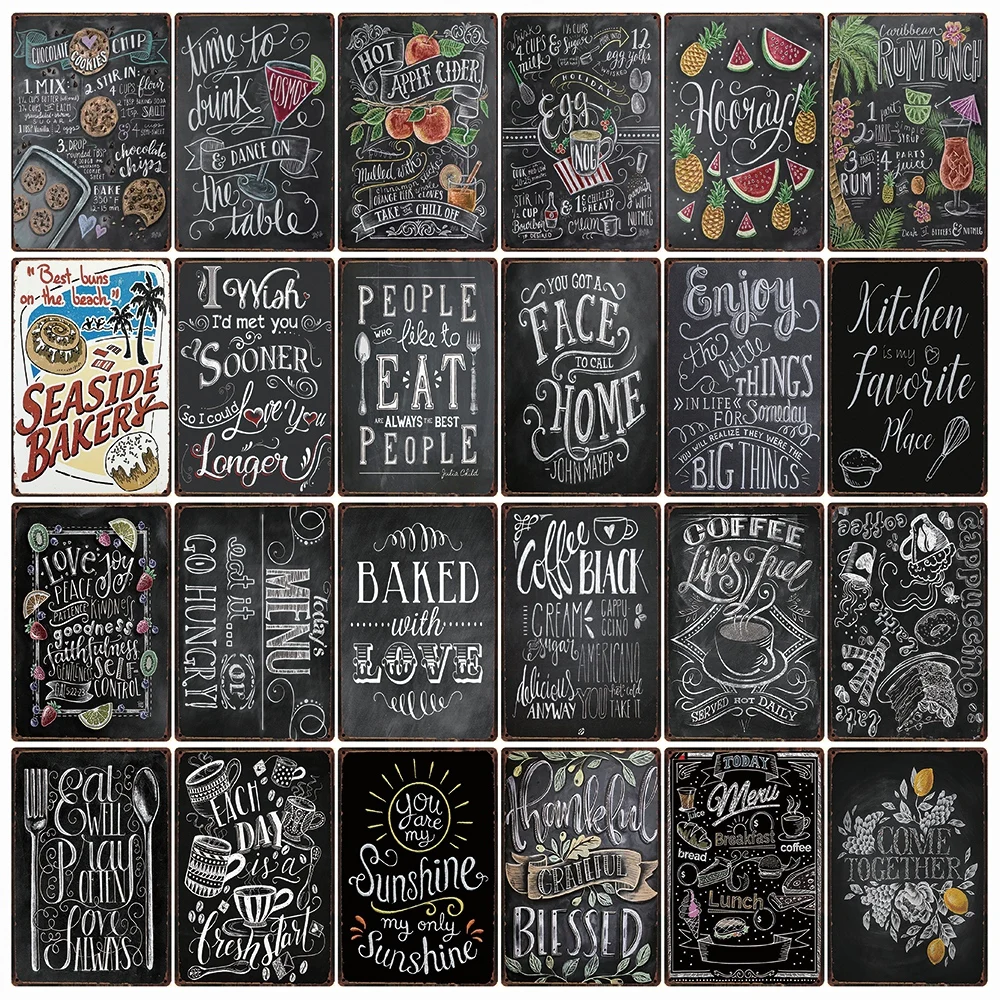 CHOCOLATE CHIP
COOKIES
1. MIX:
2. STIR IN:
4 CUPS flour
1 TSP BAKING SODA
1 TSP SALT
2 eggs
3. DROP
4 cups
chocolate
chips
BAKE
350°F
time to
drink
COSMOS
& DANCE ON
the
table
HOT
APPLE CIDER
Mulled with
cinnamon sticks
ORANGE PEEL & CLOVES
TAKE THE CHILL OFF
4 CUPS
milk
& Sugar
12
egg yolks
HOLIDAY
Egg
NOG
STIR IN
1/2 CUP
Bourbon
& CHILLED
HEAVY
cream
garnish
WITH
NUTMEG
Hooray!
Caribbean
RUM PUNCH
1 part
lime
2 PARTS
simple
syrup
3 PARTS
RUM
4 PARTS
juice
Dash of BITTERS & NUTMEG
"Best buns
on the beach"
SEASIDE
BAKERY
I Wish
I'd met you
SOONER
so I could Love You
Longer
PEOPLE
WHO like to
EAT
ARE ALWAYS THE BEST
PEOPLE
Julia Child
YOU GOT A
FACE
TO CALL
HOME
-JOHN MAYER-
Enjoy
the little
THINGS
IN LIFE
FOR Someday
YOU WILL REALIZE THEY WERE THE
BIG THINGS
Kitchen
is my
Favorite
Place
LOVE joy
PEACE
PATIENCE KINDNESS
goodness
faithfulness
GENTLENESS SELF-
CONTROL
GAL 5:22-23
today's
MENU
eat it...
or
GO HUNGRY!
BAKED
with
LOVE
Coffee
BLACK
CREAM
CAPPU-
CCINO
sugar
AMERICANO
delicious
ANYWAY
YOU hot-cold
TAKE IT
COFFEE
Life's Fuel
SERVED HOT DAILY
coffee
cappuccino
latte
Eat
WELL
Pray
OFTEN
Love
ALWAYS
EACH
DAY
is a
fresh start
you
are my
Sunshine
my only
Sunshine
thankful
GRATEFUL
BLESSED
TODAY
Menu
juice
Breakfast
bread
coffee
Lunch
COME
TOGETHER